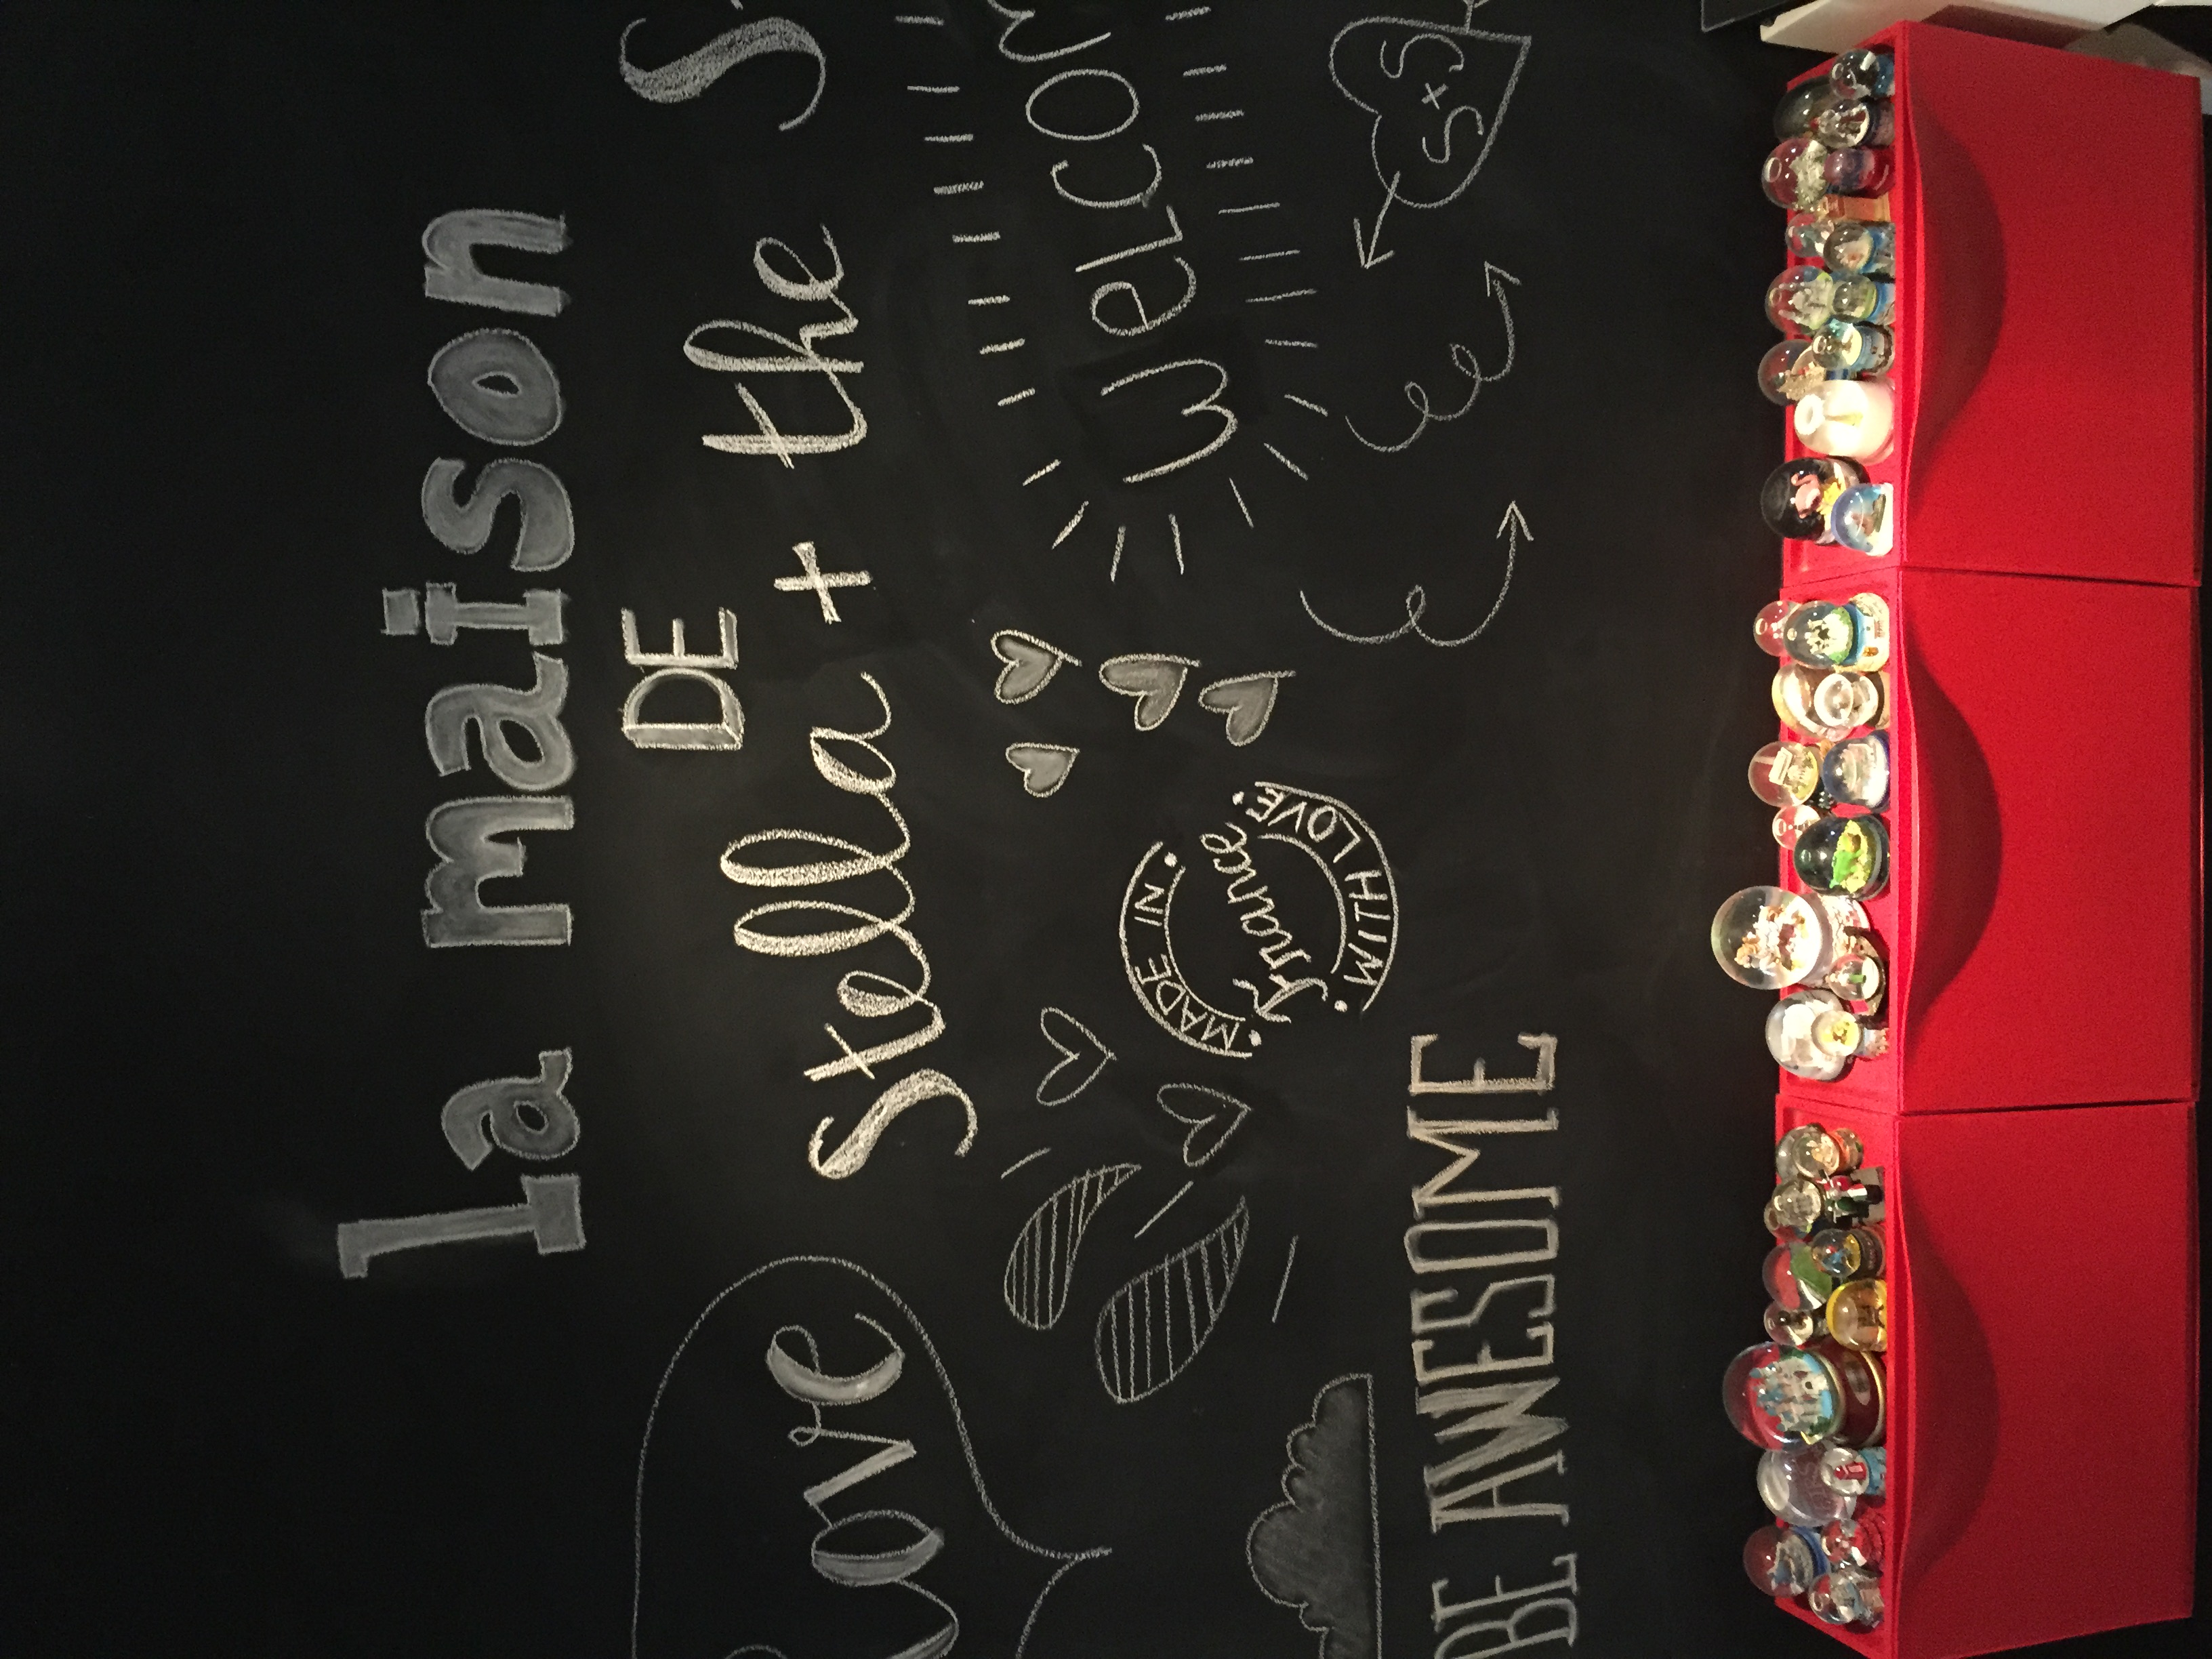 la maison
DE
Stella + the S
Love
Welcom
MADE IN
France
WITH LOVE
S+S
BE AWESOME